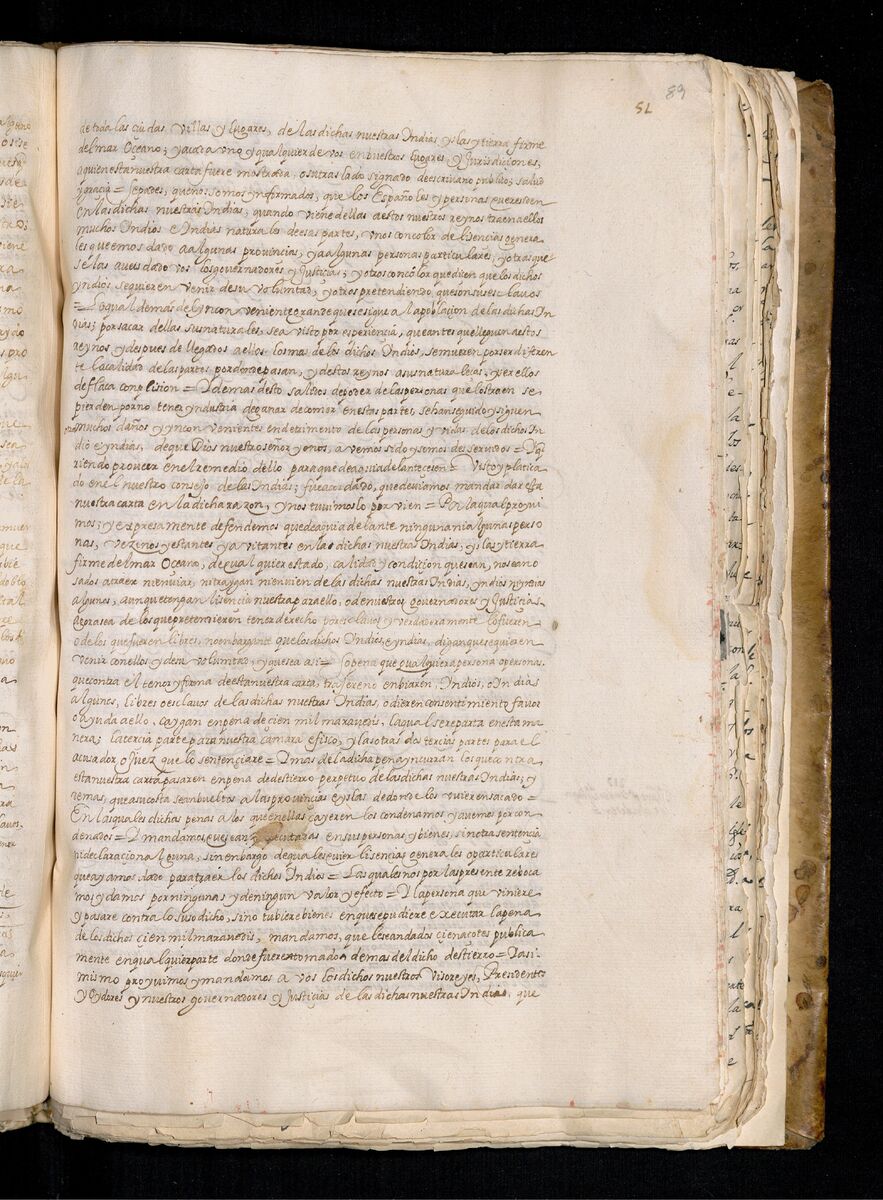 89
51
de toda las çiudas villas y Lugares, de las dichas nuestras Indias, yslas y tierra firme
del mar Oceano; y a cada vno y qualquier de vos en buestros lugares, y Jurisdiciones,
a quien esta nuestra carta fuere mostrada, o su traslado signado de escriuano publico; salud
y graçia = Sepades, que nos somos ynformados, que los Españoles y personas que residen
en las dichas nuestras Indias, quando viene dellas a estos nuestros reynos traen a ellos
muchos Indios e Indias naturales de esas partes, vnos con color de lisencias genera
les que emos dado a algunas provincias, y a algunas personas particulares, y otras que
se las aueis dado vos los governadores y Justicias; y otros con color que dicen que los dichos
yndios se quieren venir de su voluntad; y otros pretendiendo que son sus esclauos
= Lo qual demas del ynconveniente grande que se sigue a la poblacion de las dichas In
dias; por sacar dellas sus naturales, sea visto por esperiencia, que antes que lleguen a estos
reynos y despues de llegados a ellos los mas de los dichos Indios, se mueren por ser diferen
te la calidad de las partes por donde pasan, y destos reynos a su naturaleças, y ser ellos
de flaca conplision = Y demas desto, salidos de poder de las personas que los traen se
pierden por no tener yndustria de ganar de comer en estas partes, se han seguido y siguen
muchos daños y ynconvenientes en detrimento de las personas y vidas de los dichos In
dios e yndias, de que Dios nuestro señor y nos, avemos sido y semos deservidos = Y que
riendo proveer en el remedio dello para que de aqui adelante çecen = Visto y platica
do en el nuestro consejo de las Indias; fue acordado, que deviamos mandar dar esta
nuestra carta en la dicha razon, y nos tuvimoslo por vien = Por la qual proyui
mos; y expresamente defendemos que de aqui adelante ninguna ni algunas perso
nas, vezinos y estantes y avitantes en las dichas nuestras Indias, yslas y tierra
firme del mar Oceano, de qualquier estado, calidad y condiçion que sean, no sean o
sados a traer ni enuiar, ni traygan ni enuien de las dichas nuestras Indias, yndios ni yndias
algunos, aunque tengan lisencia nuestra para ello, o de nuestros governadores y Justicias,
agora sea de los que pretendieren tener derecho por esclavos y verdaderamente lo fueren
o de los que fueren libres, no enbargante que los dichos Indios, e yndias, digan que se quieren
venir con ellos y de su voluntad; y que sea asi = so pena que qualquiera persona o personas
que contra el tenor y firma de esta nuestra carta, trajeren o enbiaren, Indios, o Indias
algunos, libres o esclavos de las dichas nuestras Indias, o dieren consentimiento favor
o ayuda a ello, caygan en pena de çien mil maravedis, la qual se reparta en esta ma
nera; la tercia parte para nuestra camara e fisco, y las otras dos tercias partes para el
acusador, o Juez que lo sentenciare = Y mas de la dicha pena yncurran los que contra
esta nuestra carta pasaren en pena de destierro perpetuo de las dichas nuestras Indias; y
demas, que a su costa sean bueltos a las provincias e yslas de donde los vuieren sacado =
En las quales dichas penas a los que en ellas cayeren los condenamos y auemos por con
denados = Y mandamos, que sean executadas en sus personas y bienes, sin otra sentencia
ni declaraçion alguna, sin enbargo de qualesquier lisencias generales o particulares
que ayamos dado para traer los dichos Indios = Las quales nos por la presente reboca
mos, y damos por ningunas y de ningun valor y efecto = Y la persona que viniere
y pasare contra lo suso dicho, si no tubiere bienes en que se pudiere executar la pena
de los dichos çien mil maravedis, mandamos, que le sean dados çien açotes publica
mente en qualquier parte donde fueren tomados demas del dicho destierro = Y asi
mismo proyuimos y mandamos a vos los dichos nuestros Visoreyes, Presidentes
y Oydores y nuestros governadores y Justicias de las dichas nuestras Indias, que